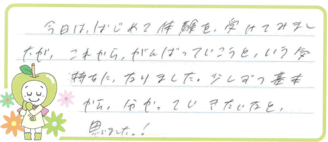 今日は、はじめて体験を、受けてみまし
たが、これから、がんばっていこうと、いう気
持ちに、なりました。少しずつ基本
から、分かっていきたいなと、
思いました!